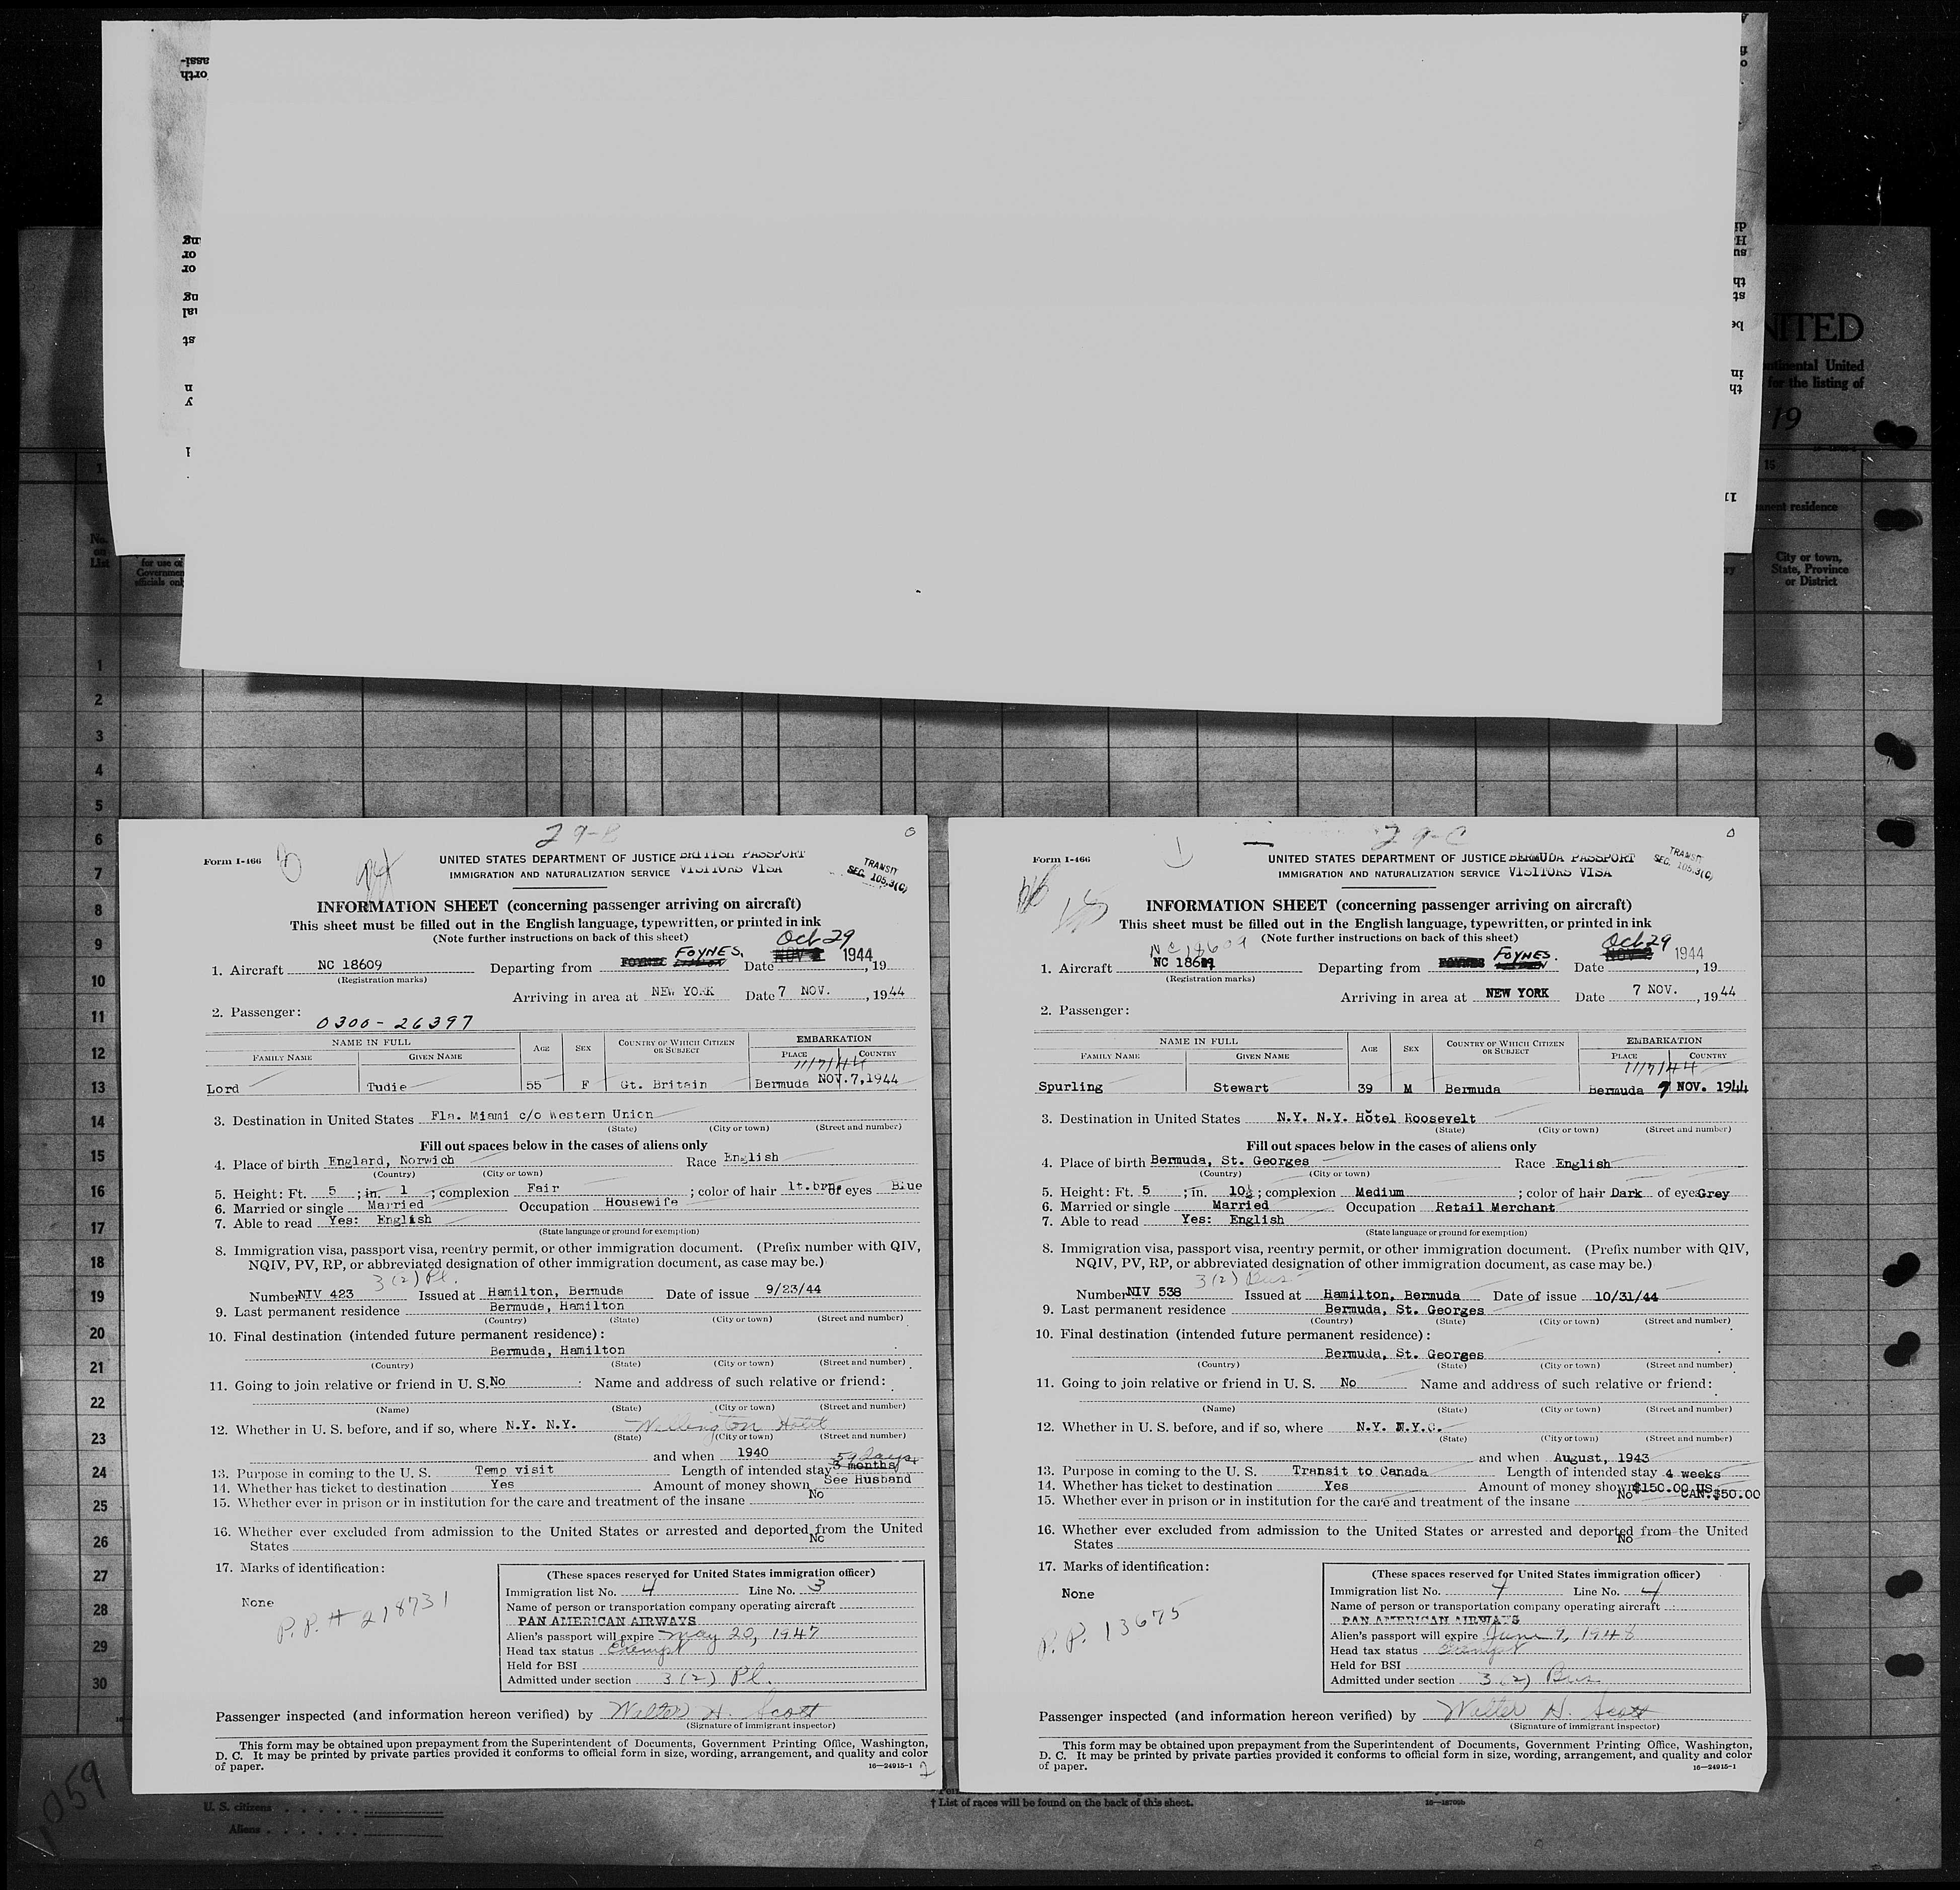 assi-
orth
ng
or
or
ng
ual
st
n
y
NITED
ntinental United
for the listing of
19
15
anent residence
City or town,
State, Province
or District
No.
on
List
for use of
Government
officials only
1
1
2
3
4
5
6
7
8
9
10
11
12
13
14
15
16
17
18
19
20
21
22
23
24
25
26
27
28
29
30
29-B
Form I-466
UNITED STATES DEPARTMENT OF JUSTICE BRITISH PASSPORT
IMMIGRATION AND NATURALIZATION SERVICE VISITORS VISA
TRANSIT
SEC. 105.3(C)
INFORMATION SHEET (concerning passenger arriving on aircraft)
This sheet must be filled out in the English language, typewritten, or printed in ink
(Note further instructions on back of this sheet)
Oct 29
1. Aircraft NC 18609 Departing from FOYNES. Date 1944, 19
(Registration marks)
Arriving in area at NEW YORK Date 7 NOV. , 1944
2. Passenger:
0300-26397
NAME IN FULL AGE SEX COUNTRY OF WHICH CITIZEN OR SUBJECT EMBARKATION
FAMILY NAME GIVEN NAME PLACE COUNTRY
11/7/44
Lord Tudie 55 F Gt. Britain Bermuda NOV.7,1944
3. Destination in United States Fla. Miami c/o Western Union
(State) (City or town) (Street and number)
Fill out spaces below in the cases of aliens only
4. Place of birth England, Norwich Race English
(Country) (City or town)
5. Height: Ft. 5 ; in. 1 ; complexion Fair ; color of hair lt.brn. of eyes Blue
6. Married or single Married Occupation Housewife
7. Able to read Yes: English
(State language or ground for exemption)
8. Immigration visa, passport visa, reentry permit, or other immigration document. (Prefix number with QIV,
NQIV, PV, RP, or abbreviated designation of other immigration document, as case may be.)
3(2) Pl.
Number NIV 423 Issued at Hamilton, Bermuda Date of issue 9/23/44
9. Last permanent residence Bermuda, Hamilton
(Country) (State) (City or town) (Street and number)
10. Final destination (intended future permanent residence):
Bermuda, Hamilton
(Country) (State) (City or town) (Street and number)
11. Going to join relative or friend in U. S. No : Name and address of such relative or friend:
(Name) (State) (City or town) (Street and number)
12. Whether in U. S. before, and if so, where N.Y. N.Y. Wellington Hotel
(State) (City or town) (Street and number)
and when 1940
59 days
13. Purpose in coming to the U. S. Temp visit Length of intended stay 3 months
14. Whether has ticket to destination Yes Amount of money shown See Husband
15. Whether ever in prison or in institution for the care and treatment of the insane No
16. Whether ever excluded from admission to the United States or arrested and deported from the United
States No
17. Marks of identification:
None
P.P. # 218731
(These spaces reserved for United States immigration officer)
Immigration list No. 4 Line No. 3
Name of person or transportation company operating aircraft
PAN AMERICAN AIRWAYS
Alien's passport will expire May 20, 1947
Head tax status Exempt
Held for BSI
Admitted under section 3(2) Pl.
Passenger inspected (and information hereon verified) by Walter H. Scott
(Signature of immigrant inspector)
This form may be obtained upon prepayment from the Superintendent of Documents, Government Printing Office, Washington,
D. C. It may be printed by private parties provided it conforms to official form in size, wording, arrangement, and quality and color
of paper. 16—24915-1
2
29-C
Form I-466
UNITED STATES DEPARTMENT OF JUSTICE BERMUDA PASSPORT
IMMIGRATION AND NATURALIZATION SERVICE VISITORS VISA
TRANSIT
SEC. 105.3(C)
INFORMATION SHEET (concerning passenger arriving on aircraft)
This sheet must be filled out in the English language, typewritten, or printed in ink
(Note further instructions on back of this sheet)
NC 18609
Oct 29
1. Aircraft NC 18609 Departing from FOYNES. Date 1944, 19
(Registration marks)
Arriving in area at NEW YORK Date 7 NOV. , 1944
2. Passenger:
NAME IN FULL AGE SEX COUNTRY OF WHICH CITIZEN OR SUBJECT EMBARKATION
FAMILY NAME GIVEN NAME PLACE COUNTRY
11/7/44
Spurling Stewart 39 M Bermuda Bermuda 7 NOV. 1944
3. Destination in United States N.Y. N.Y. Hotel Roosevelt
(State) (City or town) (Street and number)
Fill out spaces below in the cases of aliens only
4. Place of birth Bermuda, St. Georges Race English
(Country) (City or town)
5. Height: Ft. 5 ; in. 10½ ; complexion Medium ; color of hair Dark of eyes Grey
6. Married or single Married Occupation Retail Merchant
7. Able to read Yes: English
(State language or ground for exemption)
8. Immigration visa, passport visa, reentry permit, or other immigration document. (Prefix number with QIV,
NQIV, PV, RP, or abbreviated designation of other immigration document, as case may be.)
3(2) Bus
Number NIV 538 Issued at Hamilton, Bermuda Date of issue 10/31/44
9. Last permanent residence Bermuda, St. Georges
(Country) (State) (City or town) (Street and number)
10. Final destination (intended future permanent residence):
Bermuda, St. Georges
(Country) (State) (City or town) (Street and number)
11. Going to join relative or friend in U. S. No Name and address of such relative or friend:
(Name) (State) (City or town) (Street and number)
12. Whether in U. S. before, and if so, where N.Y. N.Y.C.
(State) (City or town) (Street and number)
and when August, 1943
13. Purpose in coming to the U. S. Transit to Canada Length of intended stay 4 weeks
14. Whether has ticket to destination Yes Amount of money shown $150.00 US
15. Whether ever in prison or in institution for the care and treatment of the insane No CAN.$50.00
16. Whether ever excluded from admission to the United States or arrested and deported from the United
States No
17. Marks of identification:
None
P.P. 13675
(These spaces reserved for United States immigration officer)
Immigration list No. 4 Line No. 4
Name of person or transportation company operating aircraft
PAN AMERICAN AIRWAYS
Alien's passport will expire June 7, 1948
Head tax status Exempt
Held for BSI
Admitted under section 3(2) Bus.
Passenger inspected (and information hereon verified) by Walter H. Scott
(Signature of immigrant inspector)
This form may be obtained upon prepayment from the Superintendent of Documents, Government Printing Office, Washington,
D. C. It may be printed by private parties provided it conforms to official form in size, wording, arrangement, and quality and color
of paper. 16—24915-1
1059
U. S. citizens
Aliens
† List of races will be found on the back of this sheet.